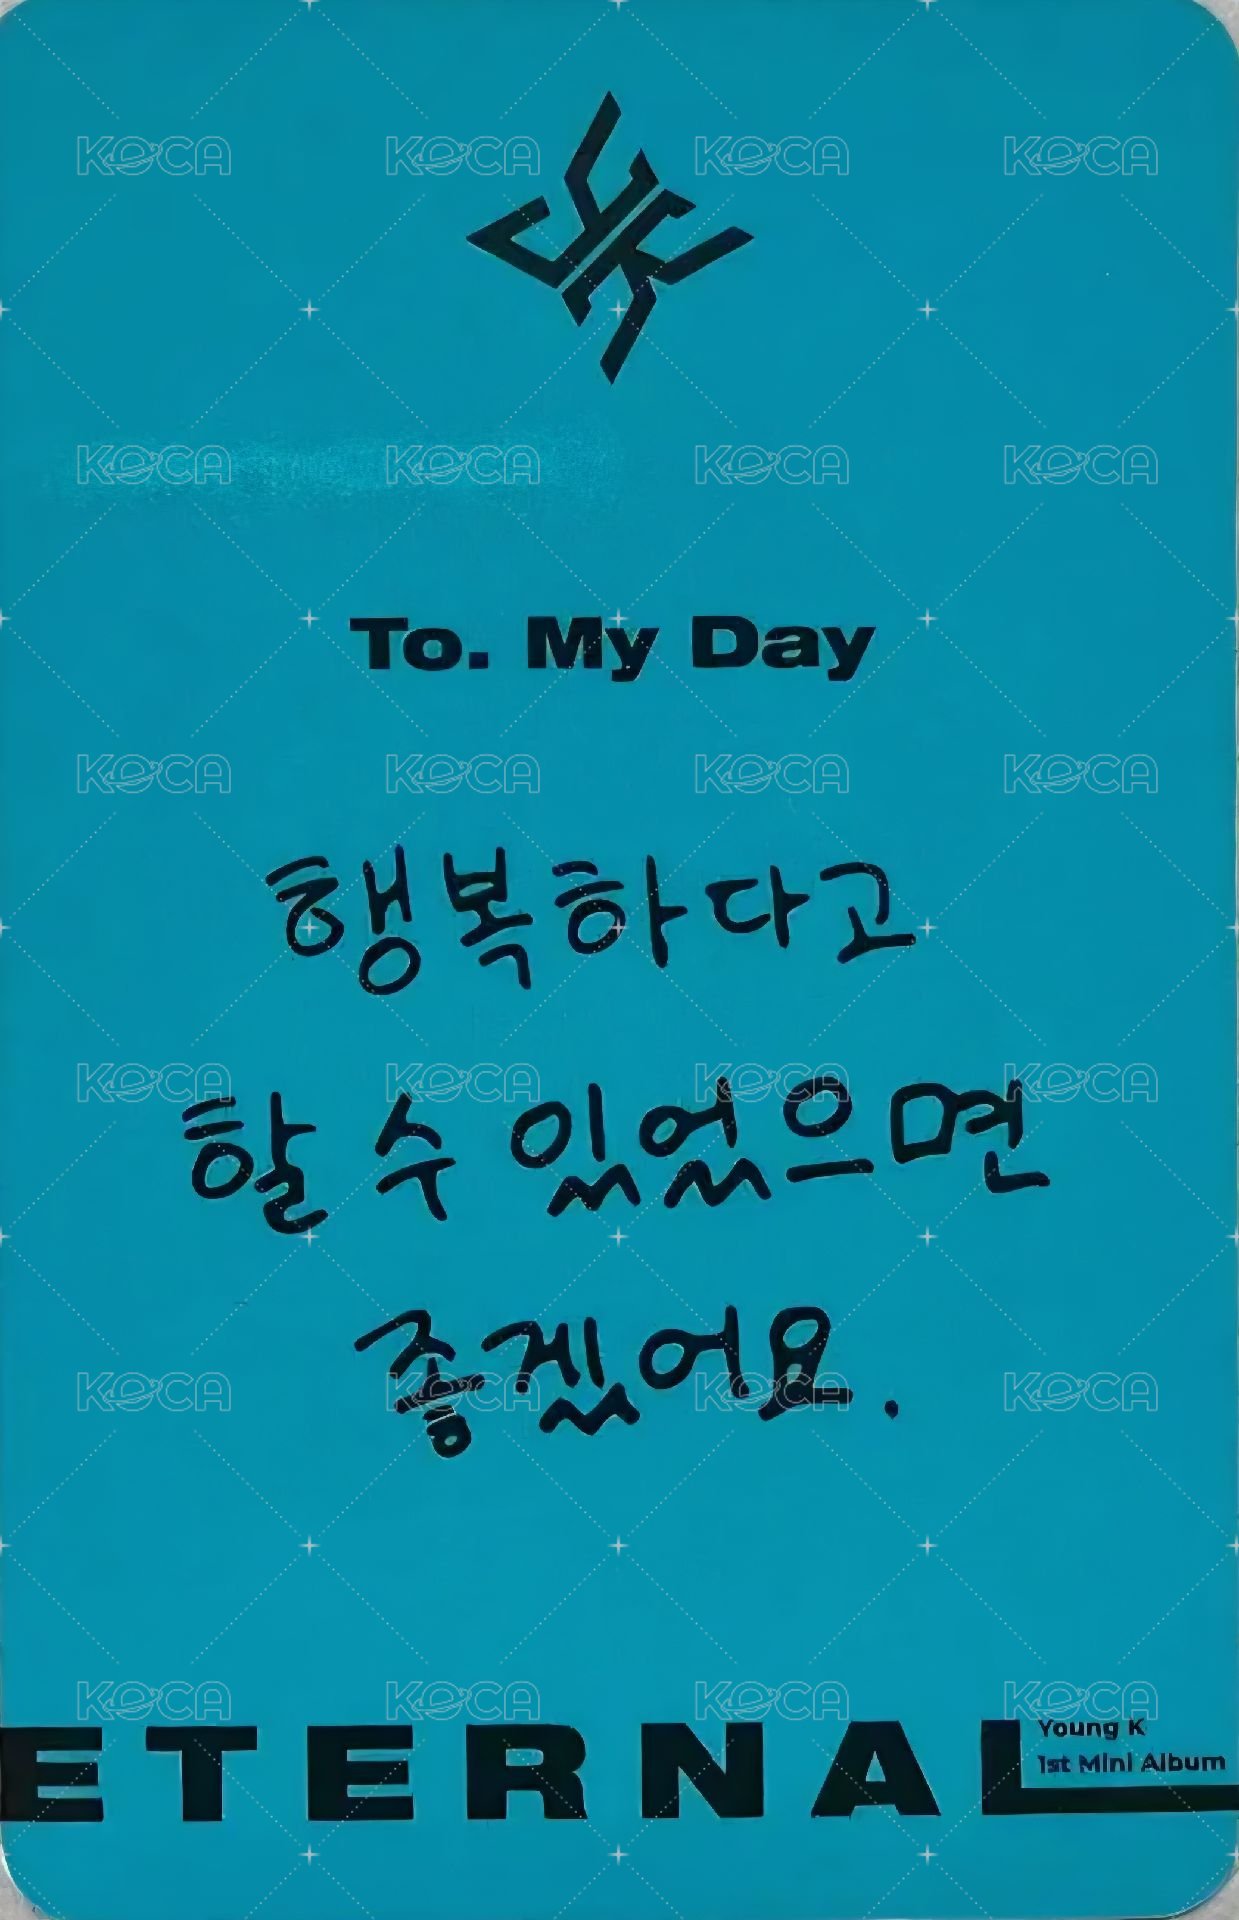 KOCA KOCA KOCA KOCA
KOCA KOCA KOCA KOCA
To. My Day
KOCA KOCA KOCA KOCA
행복하다고
KOCA KOCA KOCA KOCA
할 수 있었으면
좋겠어요.
KOCA KOCA KOCA KOCA
KOCA KOCA KOCA KOCA
ETERNAL
Young K
1st Mini Album